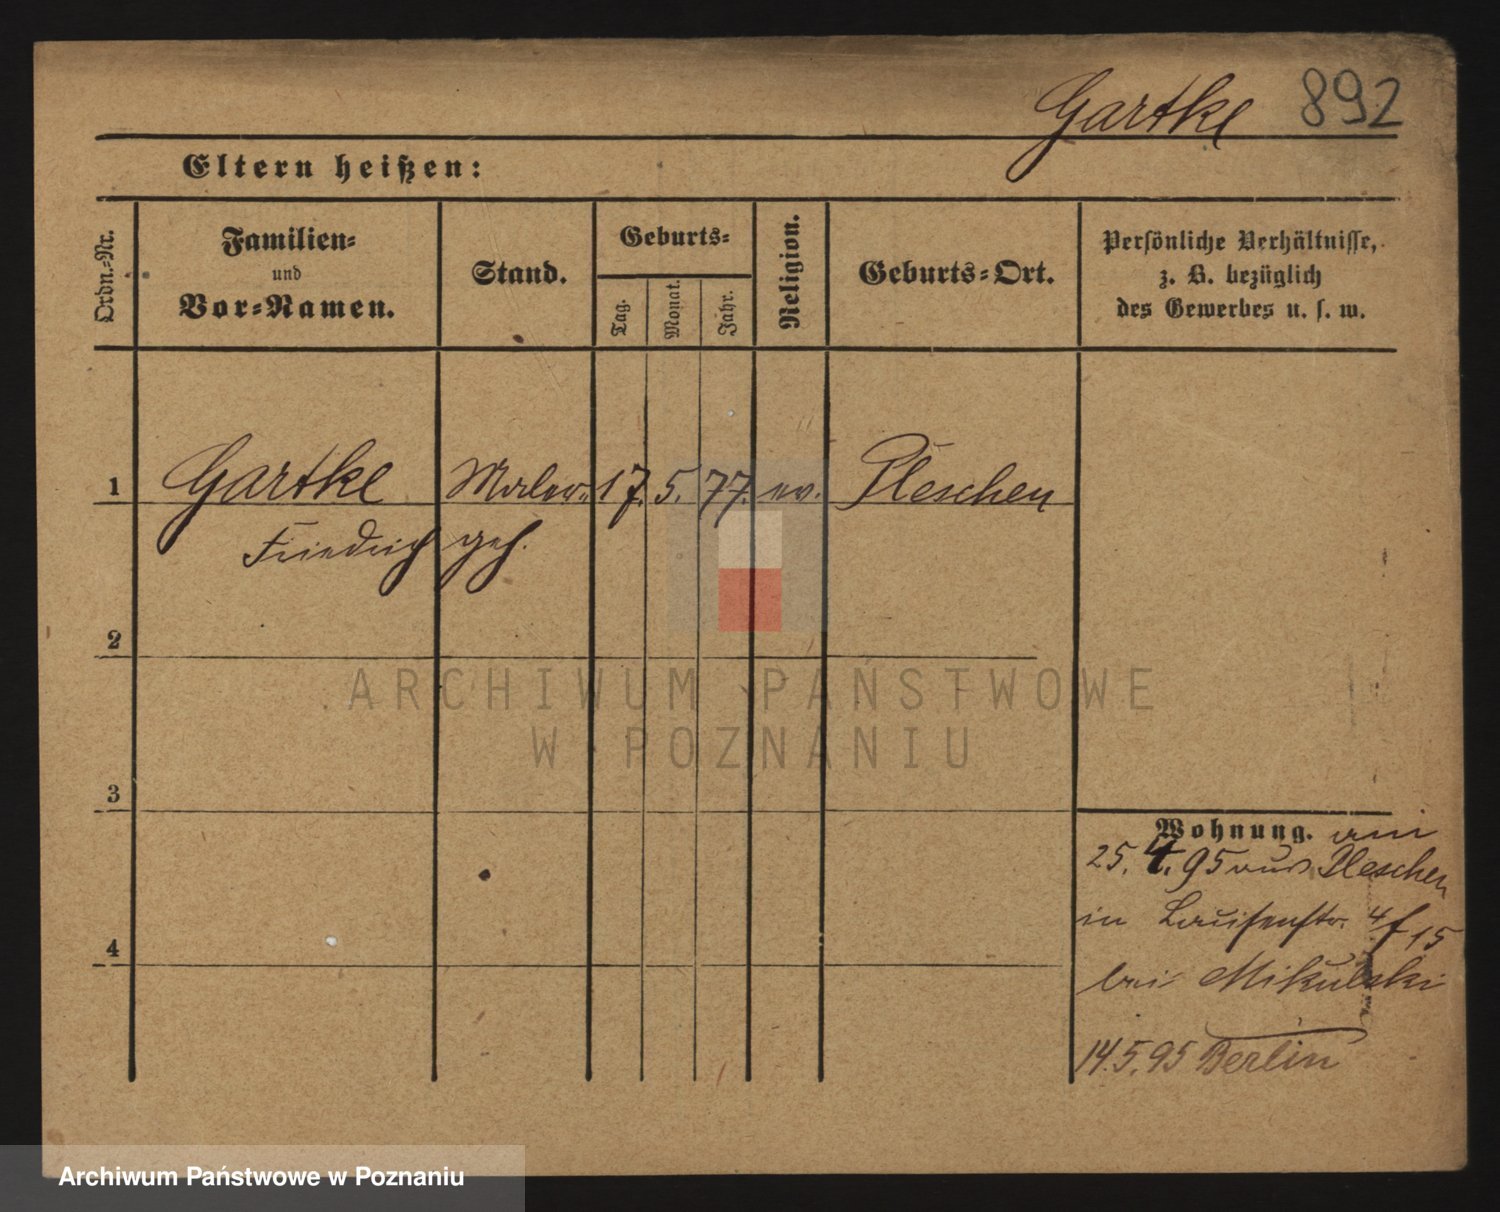 Gartke 892
Eltern heißen:
Ordn.=Nr.
Familien=
und
Vor=Namen.
Stand.
Geburts=
Tag.
Monat.
Jahr.
Religion.
Geburts=Ort.
Persönliche Verhältnisse,
z. B. bezüglich
des Gewerbes u. s. w.
1 Gartke Maler= 17. 5. 77. ev. Pleschen
Friedrich geh.
2
ARCHIWUM PAŃSTWOWE
W POZNANIU
3
Wohnung. am
25. 4. 95 aus Pleschen
in Louisenstr. 4/f 15
bei Mikulski
4
14.5.95 Berlin
Archiwum Państwowe w Poznaniu